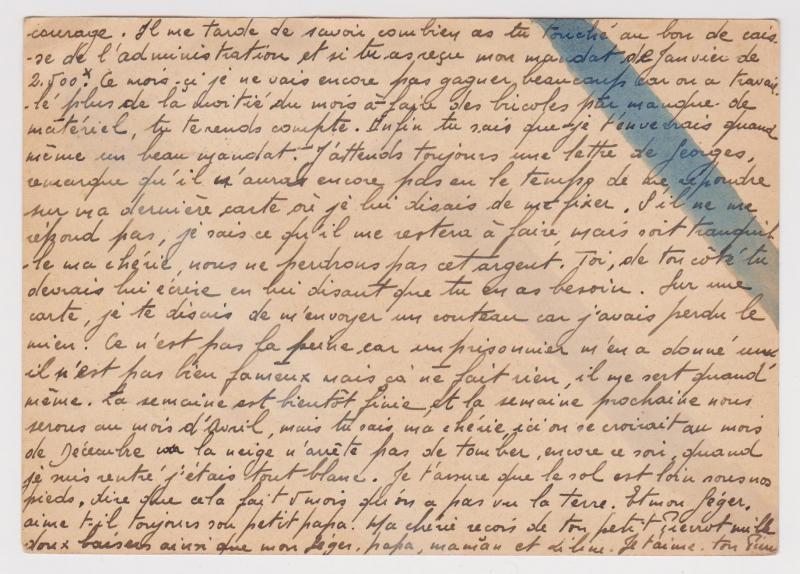 courage. Il me tarde de savoir combien as tu touché au bon de cais-
-se de l'administration et si tu as reçu mon mandat de Janvier de
2.500ˣ. Ce mois-ci je ne vais encore pas gagner beaucoup car on a travail-
-lé plus de la moitié du mois à faire des bricoles par manque de
matériel, tu te rends compte. Enfin tu sais que je t'enverrais quand
même un beau mandat. J'attends toujours une lettre de Georges,
remarque qu'il n'auras encore pas eu le temps de me répondre
sur ma dernière carte où je lui disais de me fixer. S'il ne me
répond pas, je sais ce qu'il me restera à faire mais soit tranquil-
-le ma chérie, nous ne perdrons pas cet argent. Toi, de ton côté tu
devrais lui écrire en lui disant que tu en as besoin. Sur une
carte, je te disais de m'envoyer un couteau car j'avais perdu le
mien. Ce n'est pas la peine car un prisonnier m'en a donné un
il n'est pas bien fameux mais ça ne fait rien, il me sert quand
même. La semaine est bientôt finie et la semaine prochaine nous
serons au mois d'Avril, mais tu sais, ma chérie, ici on se croirait au mois
de Décembre la neige n'arrête pas de tomber, encore ce soir, quand
je suis rentré j'étais tout blanc. Je t'assure que le sol est loin sous nos
pieds, dire que cela fait 5 mois qu'on a pas vu la terre. Et mon Géger,
aime t-il toujours son petit papa. Ma chérie reçois de ton petit Pierrot mille
doux baisers ainsi que mon Géger, papa, maman et Liline. Je t'aime. ton